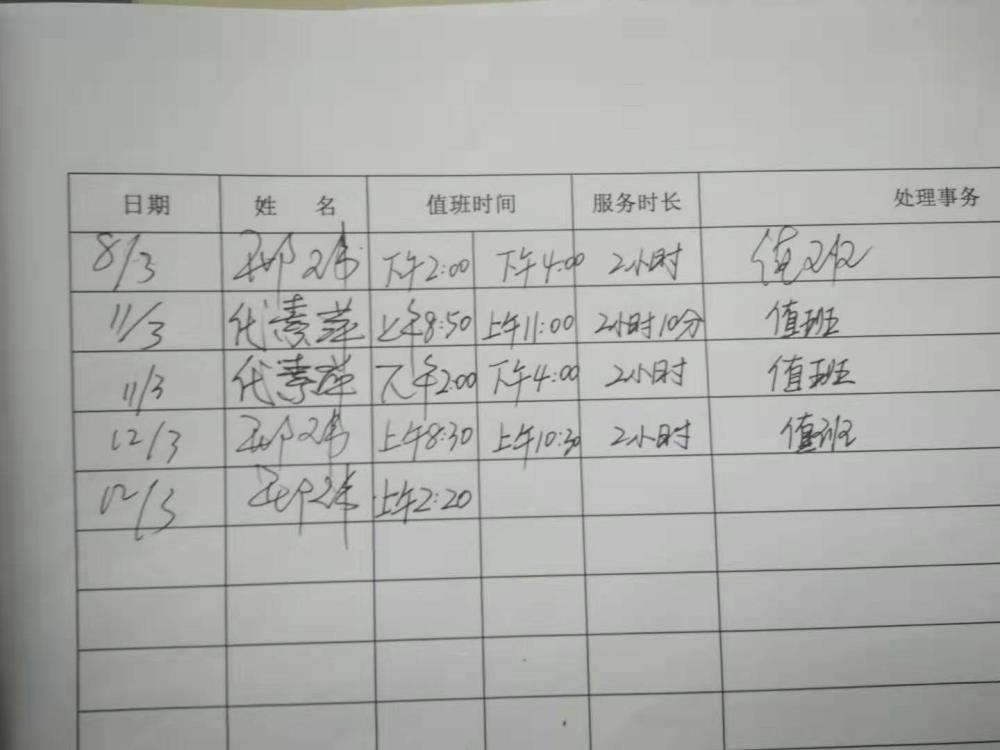 日期 姓 名 值班时间 服务时长 处理事务
8/3 下午2:00 下午4:00 2小时 值班
11/3 代素萍 上午8:50 上午11:00 2小时10分 值班
11/3 代素萍 下午2:00 下午4:00 2小时 值班
12/3 上午8:30 上午10:30 2小时 值班
12/3 上午2:20